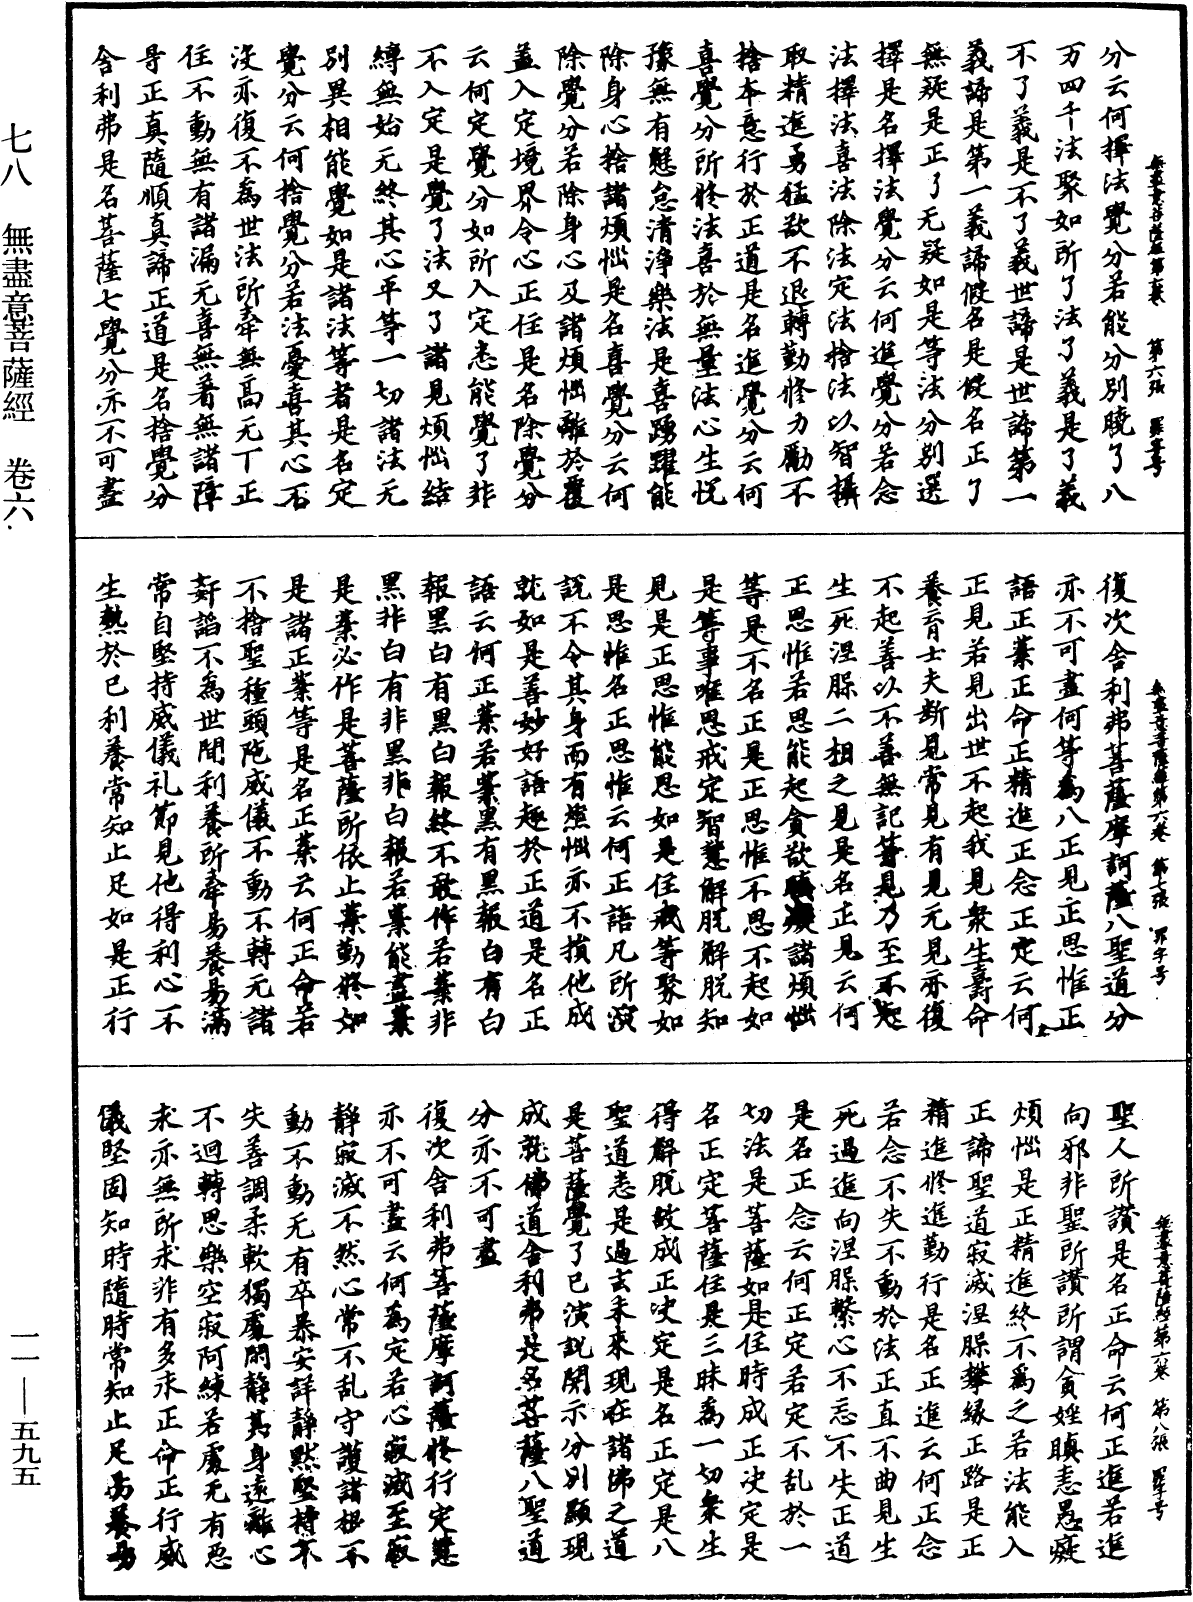 無盡意菩薩經第六卷 第六張 罪字号
分云何擇法覺分若能分別曉了八
万四千法聚如所了法了義是了義
不了義是不了義世諦是世諦第一
義諦是第一義諦假名是假名正了
無疑是正了无疑如是等法分别選
擇是名擇法覺分云何進覺分若念
法擇法喜法除法定法捨法以智攝
取精進勇猛欲不退轉勤修力勵不
捨本意行於正道是名進覺分云何
喜覺分所修法喜於無量法心生悅
豫無有懈怠清淨樂法是喜踴躍能
除身心捨諸煩惱是名喜覺分云何
除覺分若除身心及諸煩惱離於覆
蓋入定境界令心正住是名除覺分
云何定覺分如所入定悉能覺了非
不入定是覺了法又了諸見煩惱結
縛無始无終其心平等一切諸法无
別異相能覺如是諸法等者是名定
覺分云何捨覺分若法憂喜其心不
沒亦復不為世法所牽無高无下正
住不動無有諸漏无喜無著無諸障
㝵正真隨順真諦正道是名捨覺分
舍利弗是名菩薩七覺分亦不可盡
無盡意菩薩經第六卷 第七張 罪字号
復次舍利弗菩薩摩訶薩八聖道分
亦不可盡何等為八正見正思惟正
語正業正命正精進正念正定云何
正見若見出世不起我見衆生壽命
養育士夫斷見常見有見无見亦復
不起善以不善無記等見乃至不起
生死涅槃二相之見是名正見云何
正思惟若思能起貪欲瞋癡諸煩惱
等是不名正是正思惟不思不起如
是等事唯思戒定智慧解脫解脫知
見是正思惟能思如是住戒等聚如
是思惟名正思惟云何正語凡所演
說不令其身而有熱惱亦不損他成
就如是善妙好語趣於正道是名正
語云何正業若業黑有黑報白有白
報黑白有黑白報終不敢作若業非
黑非白有非黑非白報若業能盡業
是業必作是菩薩所依止業勤修如
是諸正業等是名正業云何正命若
不捨聖種頭陁威儀不動不轉无諸
姧諂不為世間利養所牽易養易滿
常自堅持威儀礼節見他得利心不
生熱於己利養常知止足如是正行
無盡意菩薩經第六卷 第八張 罪字号
聖人所讚是名正命云何正進若進
向邪非聖所讚所謂貪婬瞋恚愚癡
煩惱是正精進終不為之若法能入
正諦聖道寂滅涅槃攀緣正路是正
精進修進勤行是名正進云何正念
若念不失不動於法正直不曲見生
死過進向涅槃繫心不忘不失正道
是名正念云何正定若定不乱於一
切法是菩薩如是住時成正決定是
名正定菩薩住是三昧為一切衆生
得解脫故成正决定是名正定是八
聖道悉是過去未來現在諸佛之道
是菩薩覺了已演說開示分別顯現
成就佛道舍利弗是名菩薩八聖道
分亦不可盡
復次舍利弗菩薩摩訶薩修行定慧
亦不可盡云何為定若心寂滅至寂
靜寂滅不然心常不乱守護諸根不
動不動无有卒暴安詳靜默堅持不
失善調柔軟獨處閑靜其身遠離心
不迴轉思樂空寂阿練若處无有惡
求亦無所求非有多求正命正行威
儀堅固知時隨時常知止足易養易
七八 無盡意菩薩經 卷六
一一—五九五